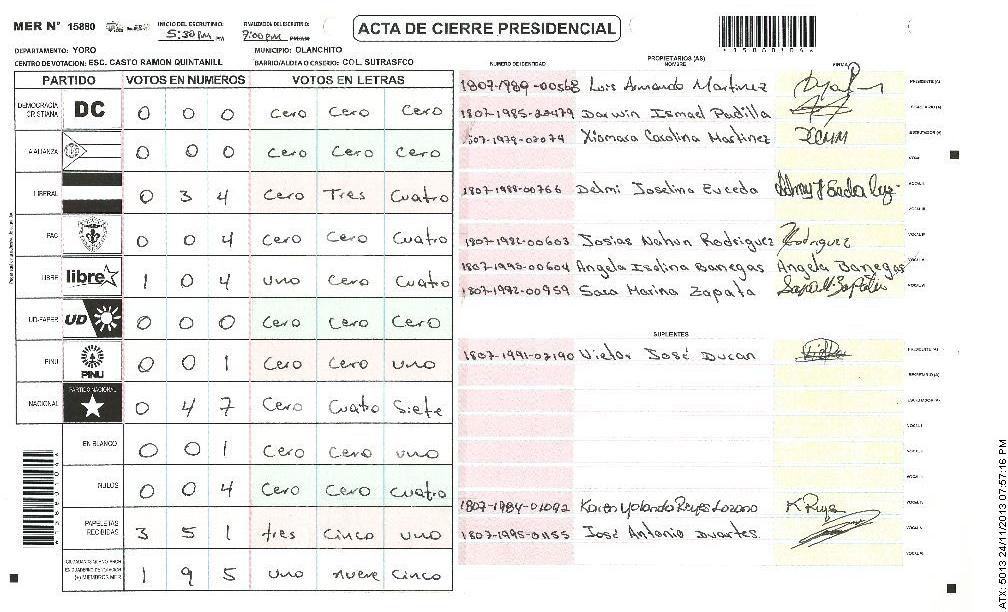 MER N° 15860
INICIO DEL ESCRUTINIO: 5:30 PM
FINALIZACION DEL ESCRUTINIO: 7:00 PM
ACTA DE CIERRE PRESIDENCIAL
DEPARTAMENTO: YORO
MUNICIPIO: OLANCHITO
CENTRO DE VOTACION: ESC. CASTO RAMON QUINTANILL
BARRIO/ALDEA O CASERIO: COL. SUTRASFCO
PARTIDO VOTOS EN NUMEROS VOTOS EN LETRAS
DEMOCRACIA CRISTIANA DC 0 0 0 Cero Cero Cero
ALIANZA 0 0 0 Cero Cero Cero
LIBERAL 0 3 4 Cero Tres Cuatro
PAC 0 0 4 Cero Cero Cuatro
LIBRE libre 1 0 4 uno Cero Cuatro
UD-FAPER UD 0 0 0 Cero Cero Cero
PINU PINU 0 0 1 Cero Cero uno
NACIONAL PARTIDO NACIONAL 0 4 7 Cero Cuatro Siete
EN BLANCO 0 0 1 Cero Cero uno
NULOS 0 0 4 Cero Cero Cuatro
PAPELETAS RECIBIDAS 3 5 1 tres Cinco uno
1 9 5 uno nueve Cinco
NUMERO DE IDENTIDAD PROPIETARIOS (AS) FIRMA
1807-1989-00568 Luis Armando Martinez PRESIDENTE (A)
Darwin Ismael Padilla
Xiomara Carolina Martinez
1807-1988-00766 Delmi Joselina Euceda
1807-1982-00603 Josias Nahun Rodriguez Rodriguez
1807-1995-00604 Angela Isolina Banegas Angela Banegas
1807-1992-00959 Sara Marina Zapata
SUPLENTES
1807-1991-02190 Victor José Ducan PRESIDENTE (A)
1807-1984-01092 Karen Yolanda Reyes Lozano K Reye
1807-1995-01155 José Antonio Duartes
ATX: 5013 24/11/2013 07:57:16 PM